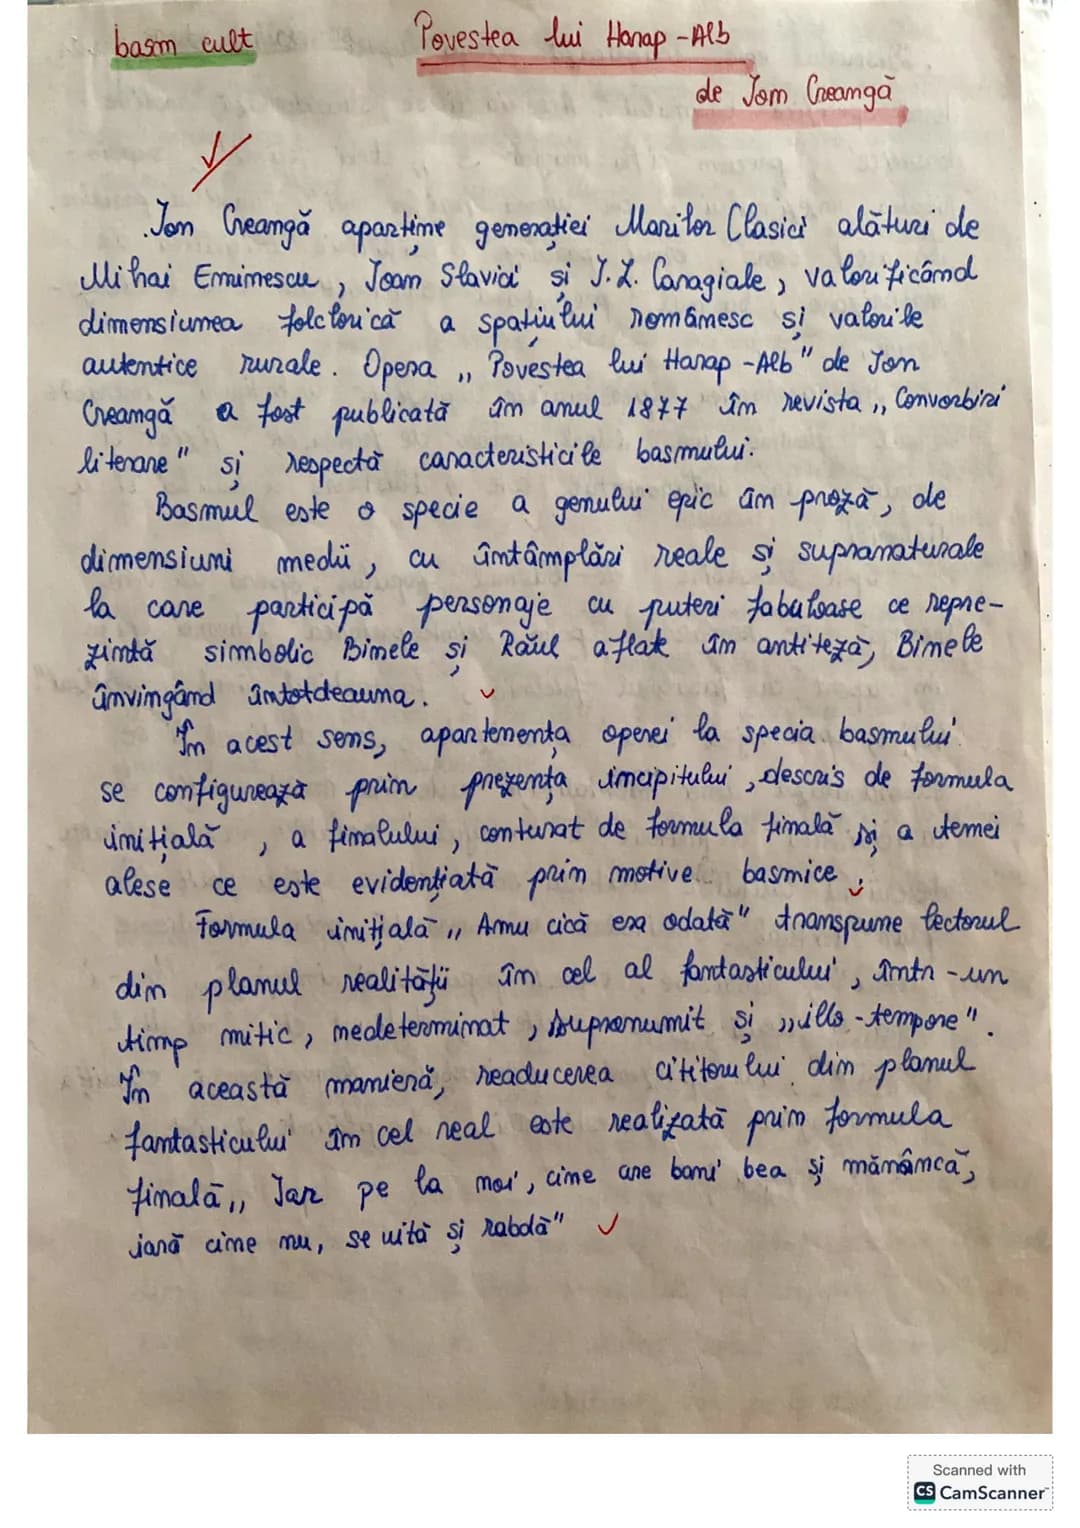 basm cult
Povestea lui Harap-Alb
de Ion Creangă
Ion Creangă aparține generației Marilor Clasici alături de
Mihai Eminescu, Ioan Slavici și I.L. Caragiale, valorificând
dimensiunea folclorică a spațiului românesc și valorile
autentice rurale. Opera „Povestea lui Harap-Alb" de Ion
Creangă a fost publicată în anul 1877 în revista „Convorbiri
literare" și respectă caracteristicile basmului.
Basmul este o specie a genului epic în proză, de
dimensiuni medii, cu întâmplări reale și supranaturale
la care participă personaje cu puteri fabuloase ce repre-
zintă simbolic Binele și Răul aflate în antiteză, Binele
învingând întotdeauna.
În acest sens, apartenența operei la specia basmului
se configurează prin prezența incipitului, descris de formula
inițială, a finalului, conturat de formula finală și a temei
alese ce este evidențiată prin motive basmice.
Formula inițială „Amu cică era odată" transpune lectorul
din planul realității în cel al fantasticului, într-un
timp mitic, nedeterminat, supranumit și „illo-tempore".
În această manieră, readucerea cititorului din planul
fantasticului în cel real este realizată prin formula
finală „Iar pe la noi, cine are bani bea și mănâncă,
iară cine nu, se uită și rabdă"
Scanned with
CS CamScanner